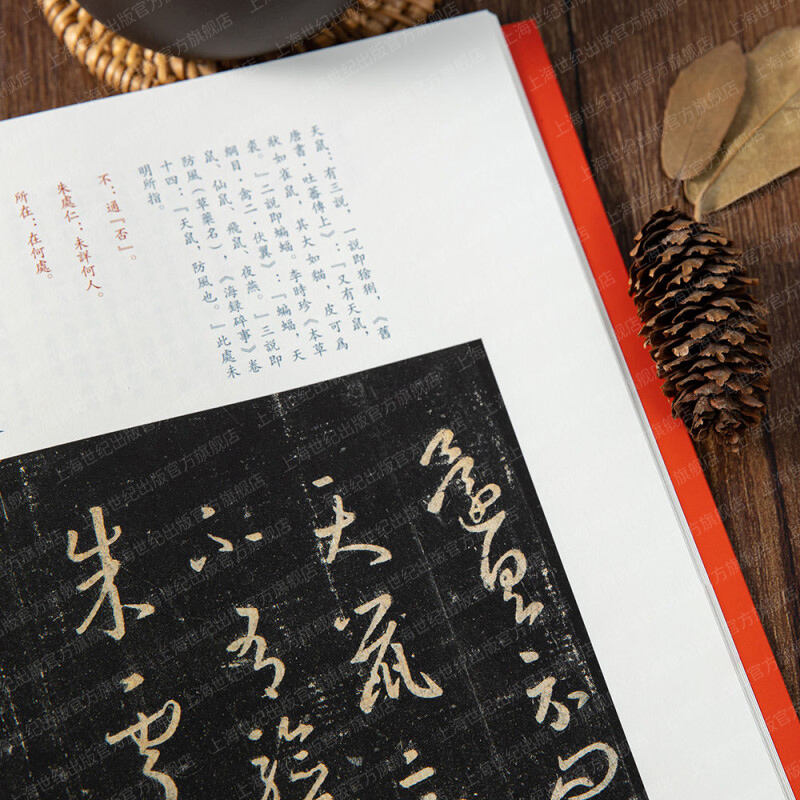 天鼠：有三説，一説即猞猁，《舊
唐書·吐蕃傳上》：『又有天鼠，
狀如雀鼠，其大如貓，皮可爲
裘。』二説即蝙蝠。李時珍《本草
綱目·禽二·伏翼》：『蝙蝠，天
鼠、仙鼠、飛鼠、夜燕。』三説即
防風（草藥名），《海録碎事》卷
十四：『天鼠，防風也。』此處未
明所指。
不：通『否』。
朱處仁：未詳何人。
所在：在何處。
天鼠
不有驗
朱處
上海世纪出版官方旗舰店